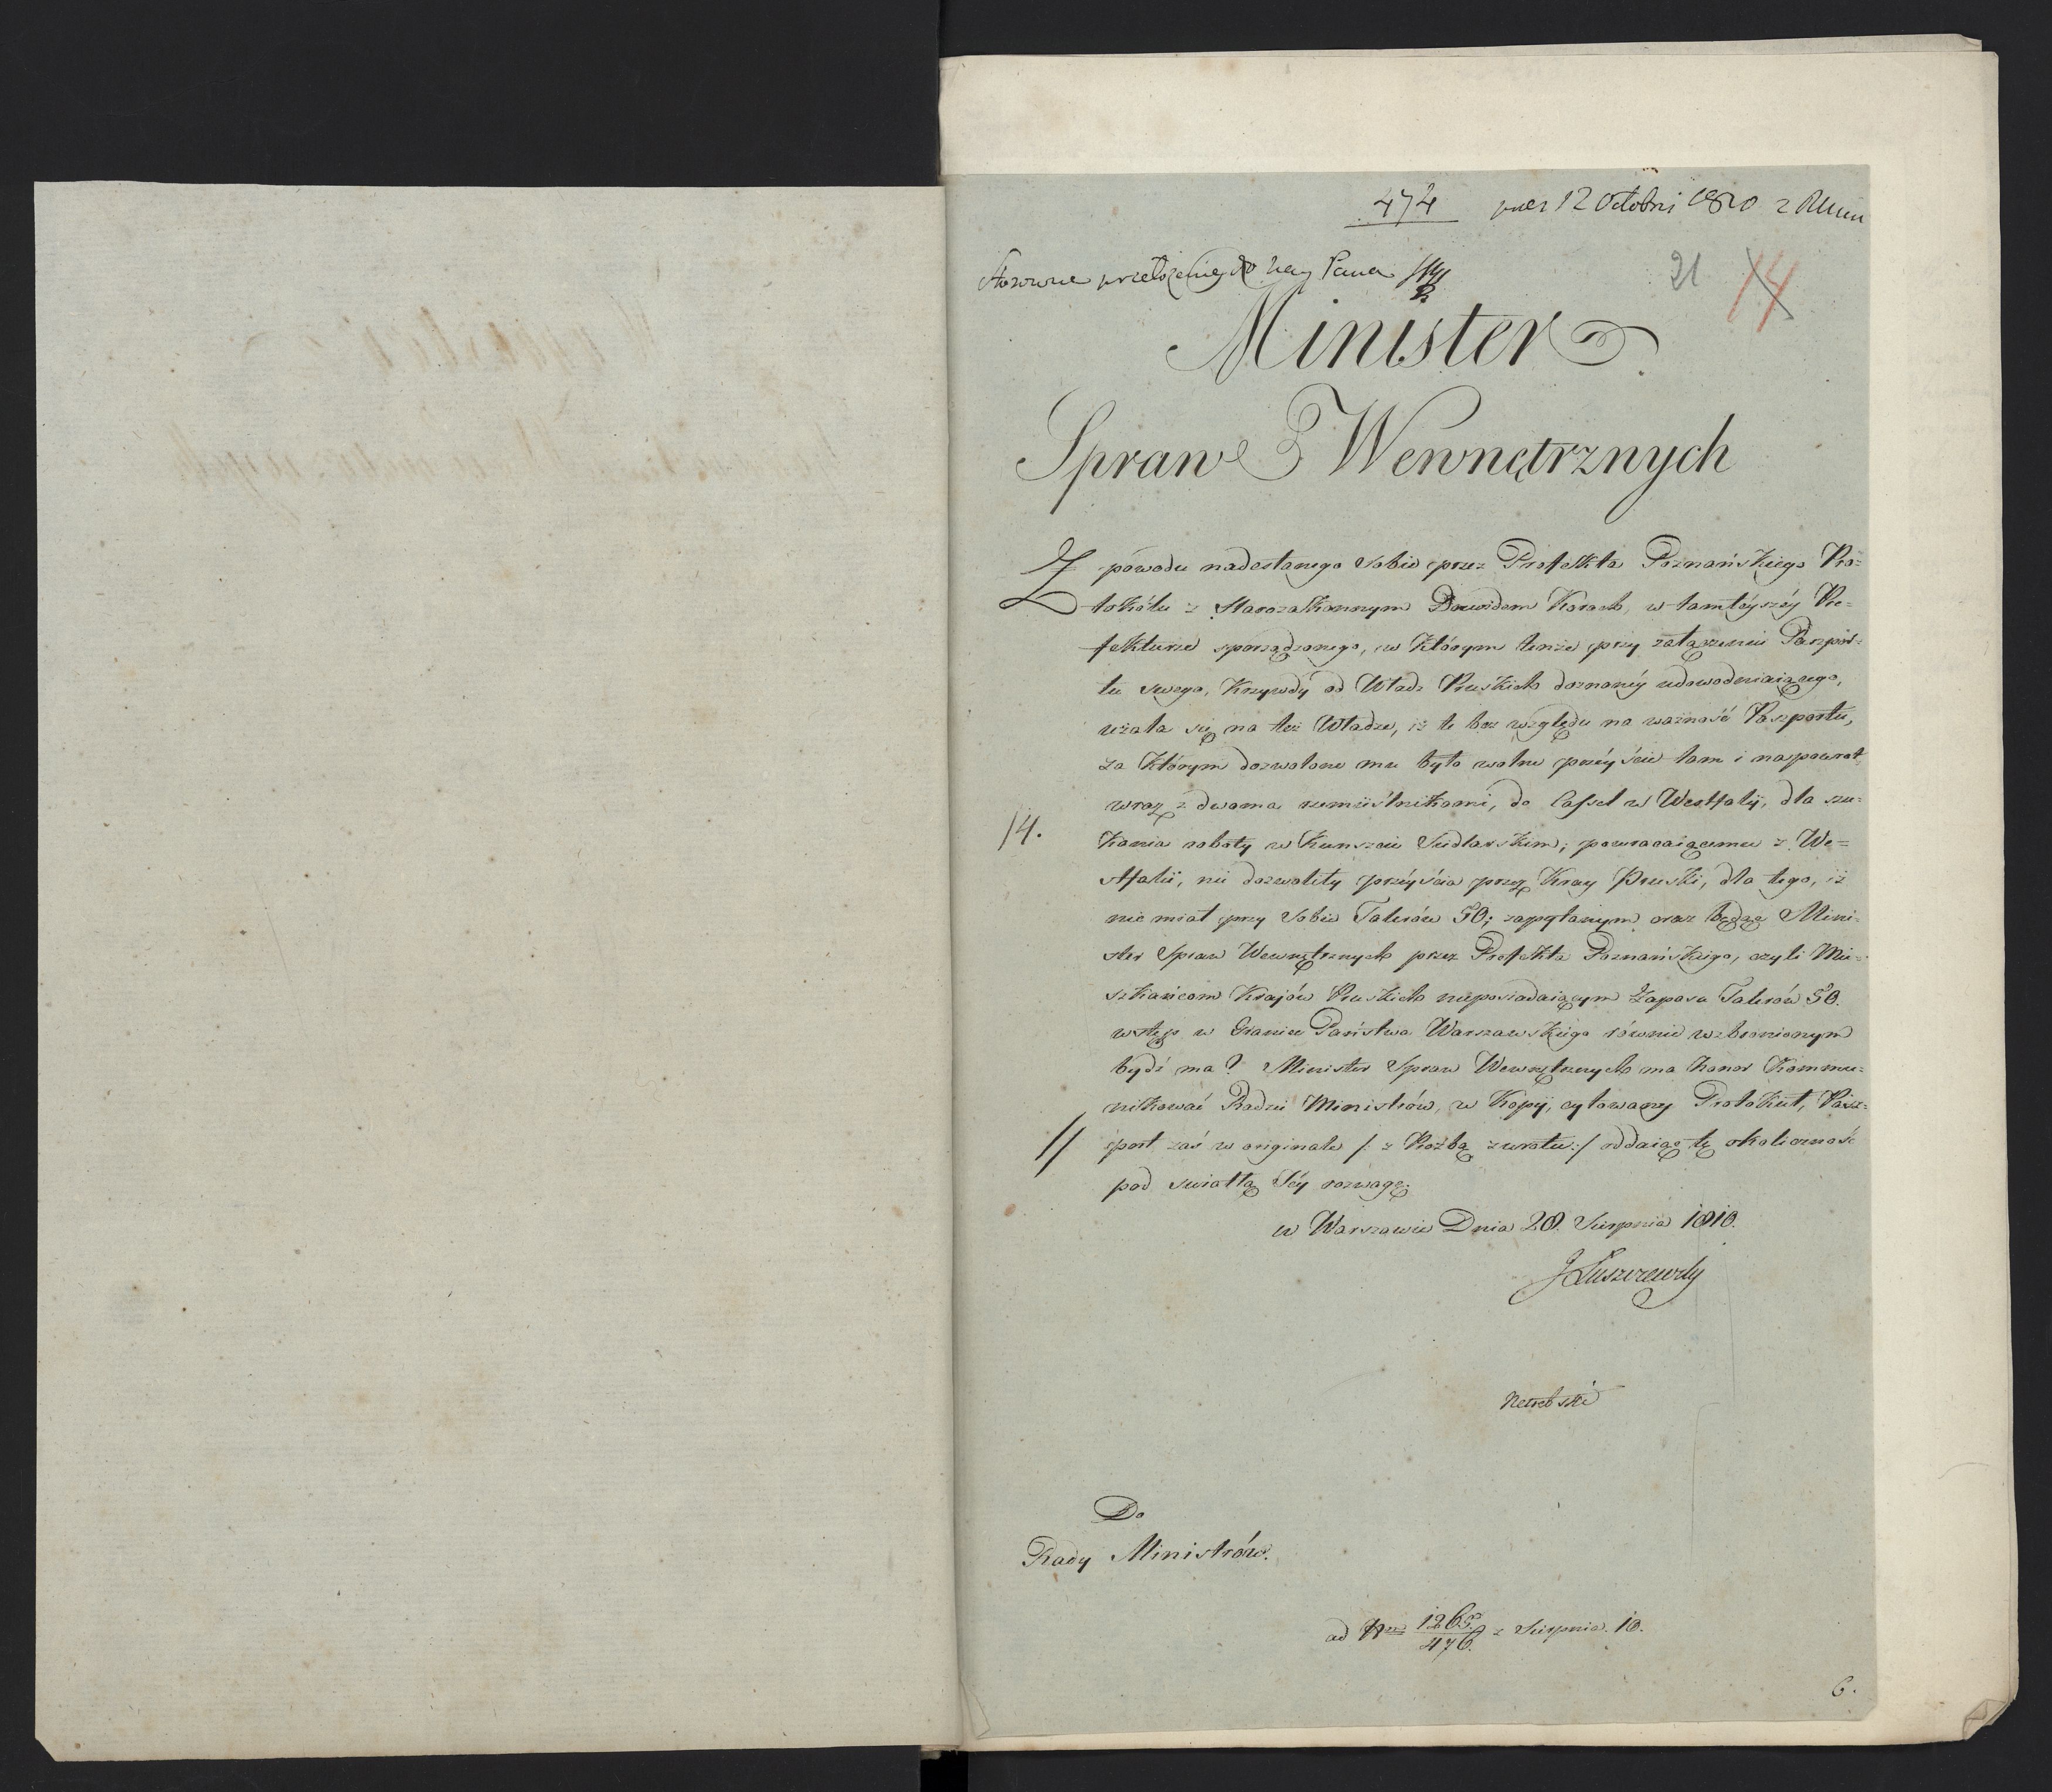 474 12 Octobri 1810 z
Stosowne przełożenie do Nay Pana
21 14
Minister
Spraw Wewnętrznych
Z powodu nadesłanego sobie przez Prefekta Poznańskiego Pro=
tokółu z Starozakonnym Dawidem Korach, w tamtéyszéy Pre=
fekturze sporządzonego, w którym tenże przy załączeniu Paszpor=
tu swego, Krzywdy od Władz Pruskich doznanéy udowodniaiącego,
użala się na też Władze, iż te bez względu na ważność Paszportu,
za którym dozwolone mu było wolne prześćie tam i napowrot
wraz z dwoma rzemieślnikami, do Cassel w Westfalij, dla szu=
14.
kania roboty w Kunszcie Siodlarskim; powracaiącemu z We=
stfalii, nie dozwoliły prześścia przez Kray Pruski, dla tego, iż
nie miał przy sobie Talerów 50; zapytanym oraz będąc Mini=
ster Spraw Wewnętrznych przez Prefekta Poznańskiego, czyli Mie=
szkańcom Krajów Pruskich nieposiadaiącym Zapasu Talerów 50.
wstęp w Granice Państwa Warszawskiego równie wzbronionym
bydź ma? Minister Spraw Wewnętrznych ma honor Kommu=
nikować Radzie Ministrów, w Kopij, cytowany Protokuł, Pasz=
port zaś w originale /: z Proźbą zwrotu :/ oddaiąc tę okoliczność
pod światłą Jéy rozwagę.
w Warszawie Dnia 28. Sierpnia 1810.
J Łuszczewsky
Do
Rady Ministrów.
ad Nrm 1265./476. z Sierpnia. 10.
6.